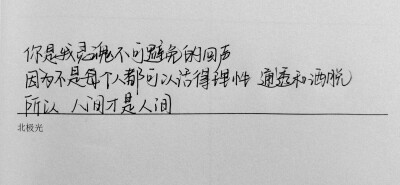 你是我灵魂不可避免的回声
因为不是每个人都可以活得理性 通透和洒脱
所以 人间才是人间
北极光